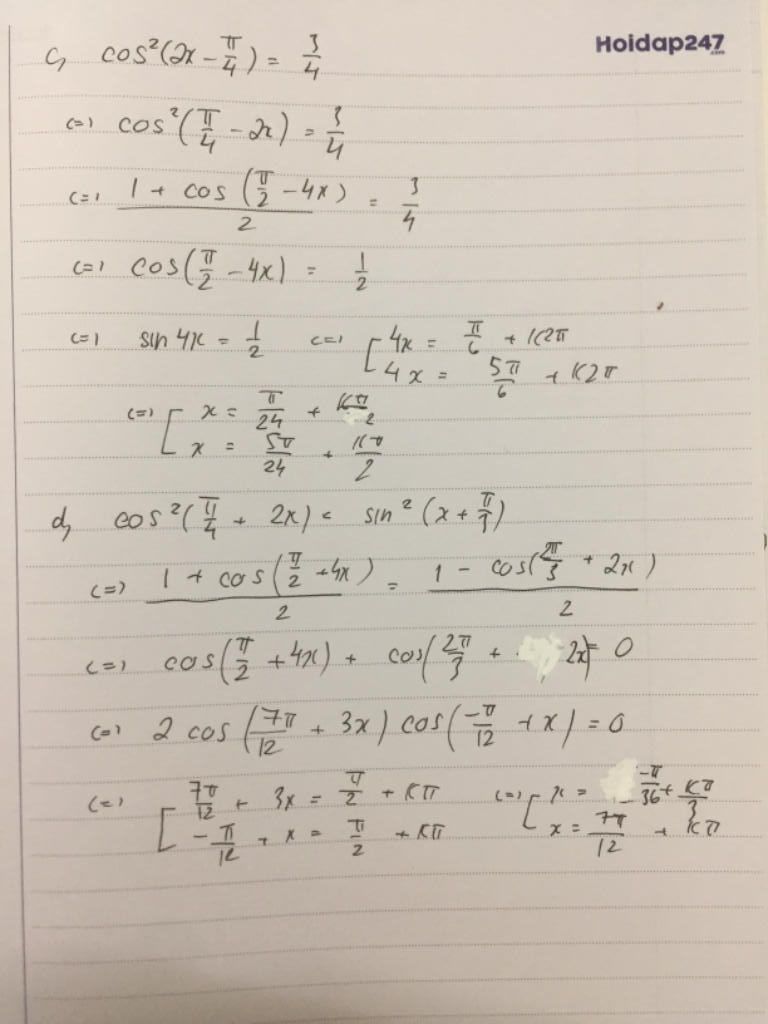 Hoidap247
.com
c, cos²(2x - π/4) = 3/4
<=> cos²(π/4 - 2x) = 3/4
<=> (1 + cos(π/2 - 4x))/2 = 3/4
<=> cos(π/2 - 4x) = 1/2
<=> sin 4x = 1/2 <=> [ 4x = π/6 + K2π
4x = 5π/6 + K2π
<=> [ x = π/24 + Kπ/2
x = 5π/24 + Kπ/2
d, cos²(π/4 + 2x) = sin²(x + π/3)
<=> (1 + cos(π/2 + 4x))/2 = (1 - cos(2π/3 + 2x))/2
<=> cos(π/2 + 4x) + cos(2π/3 + 2x) = 0
<=> 2 cos(7π/12 + 3x) cos(-π/12 + x) = 0
<=> [ 7π/12 + 3x = π/2 + Kπ <=> [ x = -π/36 + Kπ/3
-π/12 + x = π/2 + Kπ x = 7π/12 + Kπ